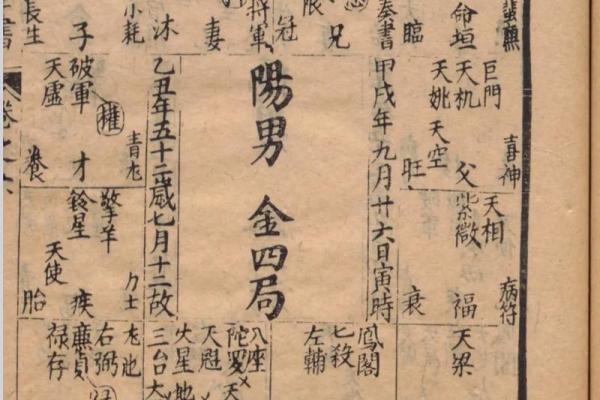 蜚廉
命垣
臨
奏書
兄
冠
將軍
妻
沐
小耗
子
長生
巨門
天机
天姚
天空
喜神
父
旺
甲戌年九月廿六日寅時
陽男 金四局
乙丑年五十二歲七月十二故
破軍
權
天虛
青龙
才
養
天相
紫微
病符
福
衰
擎羊
鈴星
天使
力士
疾
胎
天梁
鳳閣
七殺
左輔
八座
陀羅
天
天魁
火星
三台
右弼
廉貞
祿存